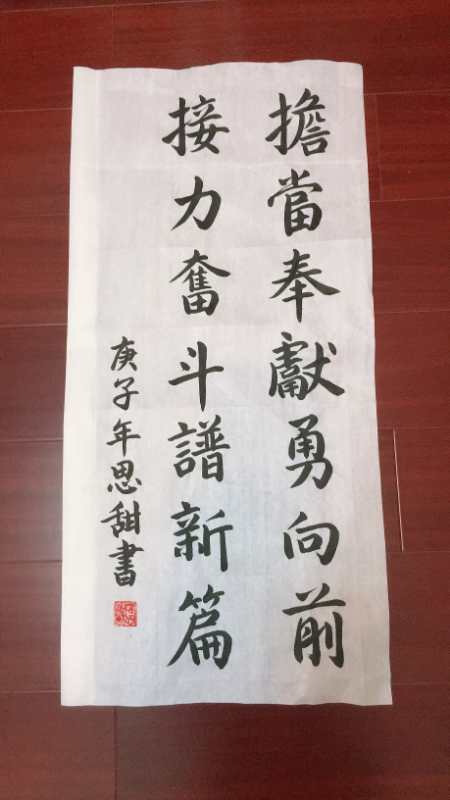 擔當奉獻勇向前
接力奮斗譜新篇
庚子年思甜書